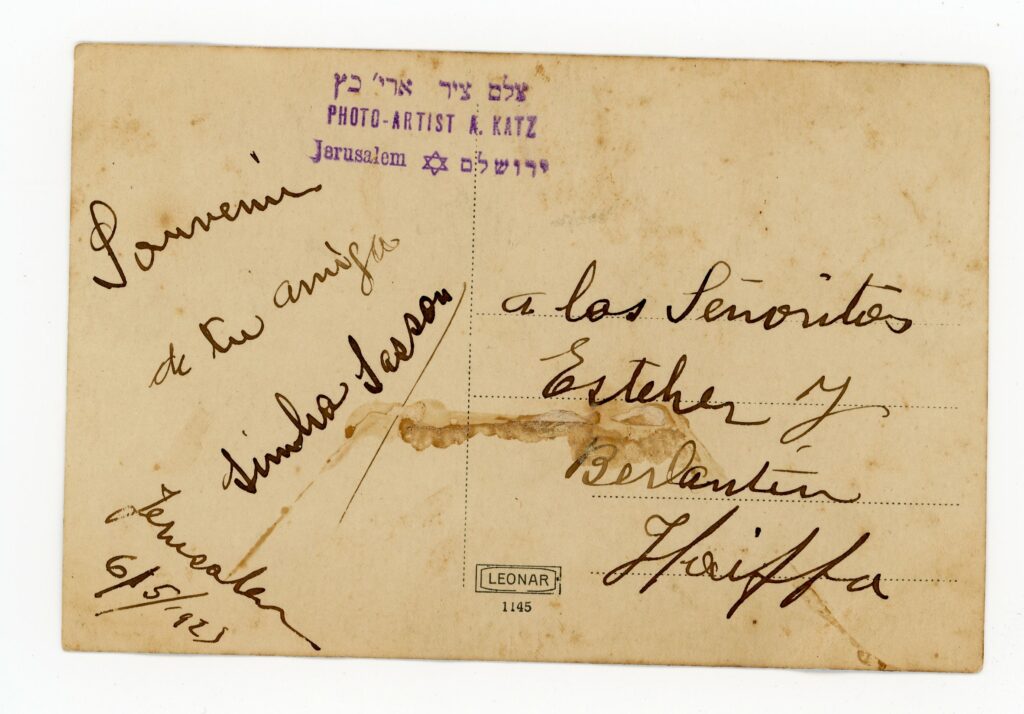 צלם ציר ארי' כץ
PHOTO-ARTIST A. KATZ
Jerusalem ✡ ירושלם
Souvenir
de tu amiga
Simha Sasson
Jerusalem
6/5/1923
a las Señoritas
Esteher y
Berlantin
Haiffa
LEONAR
1145